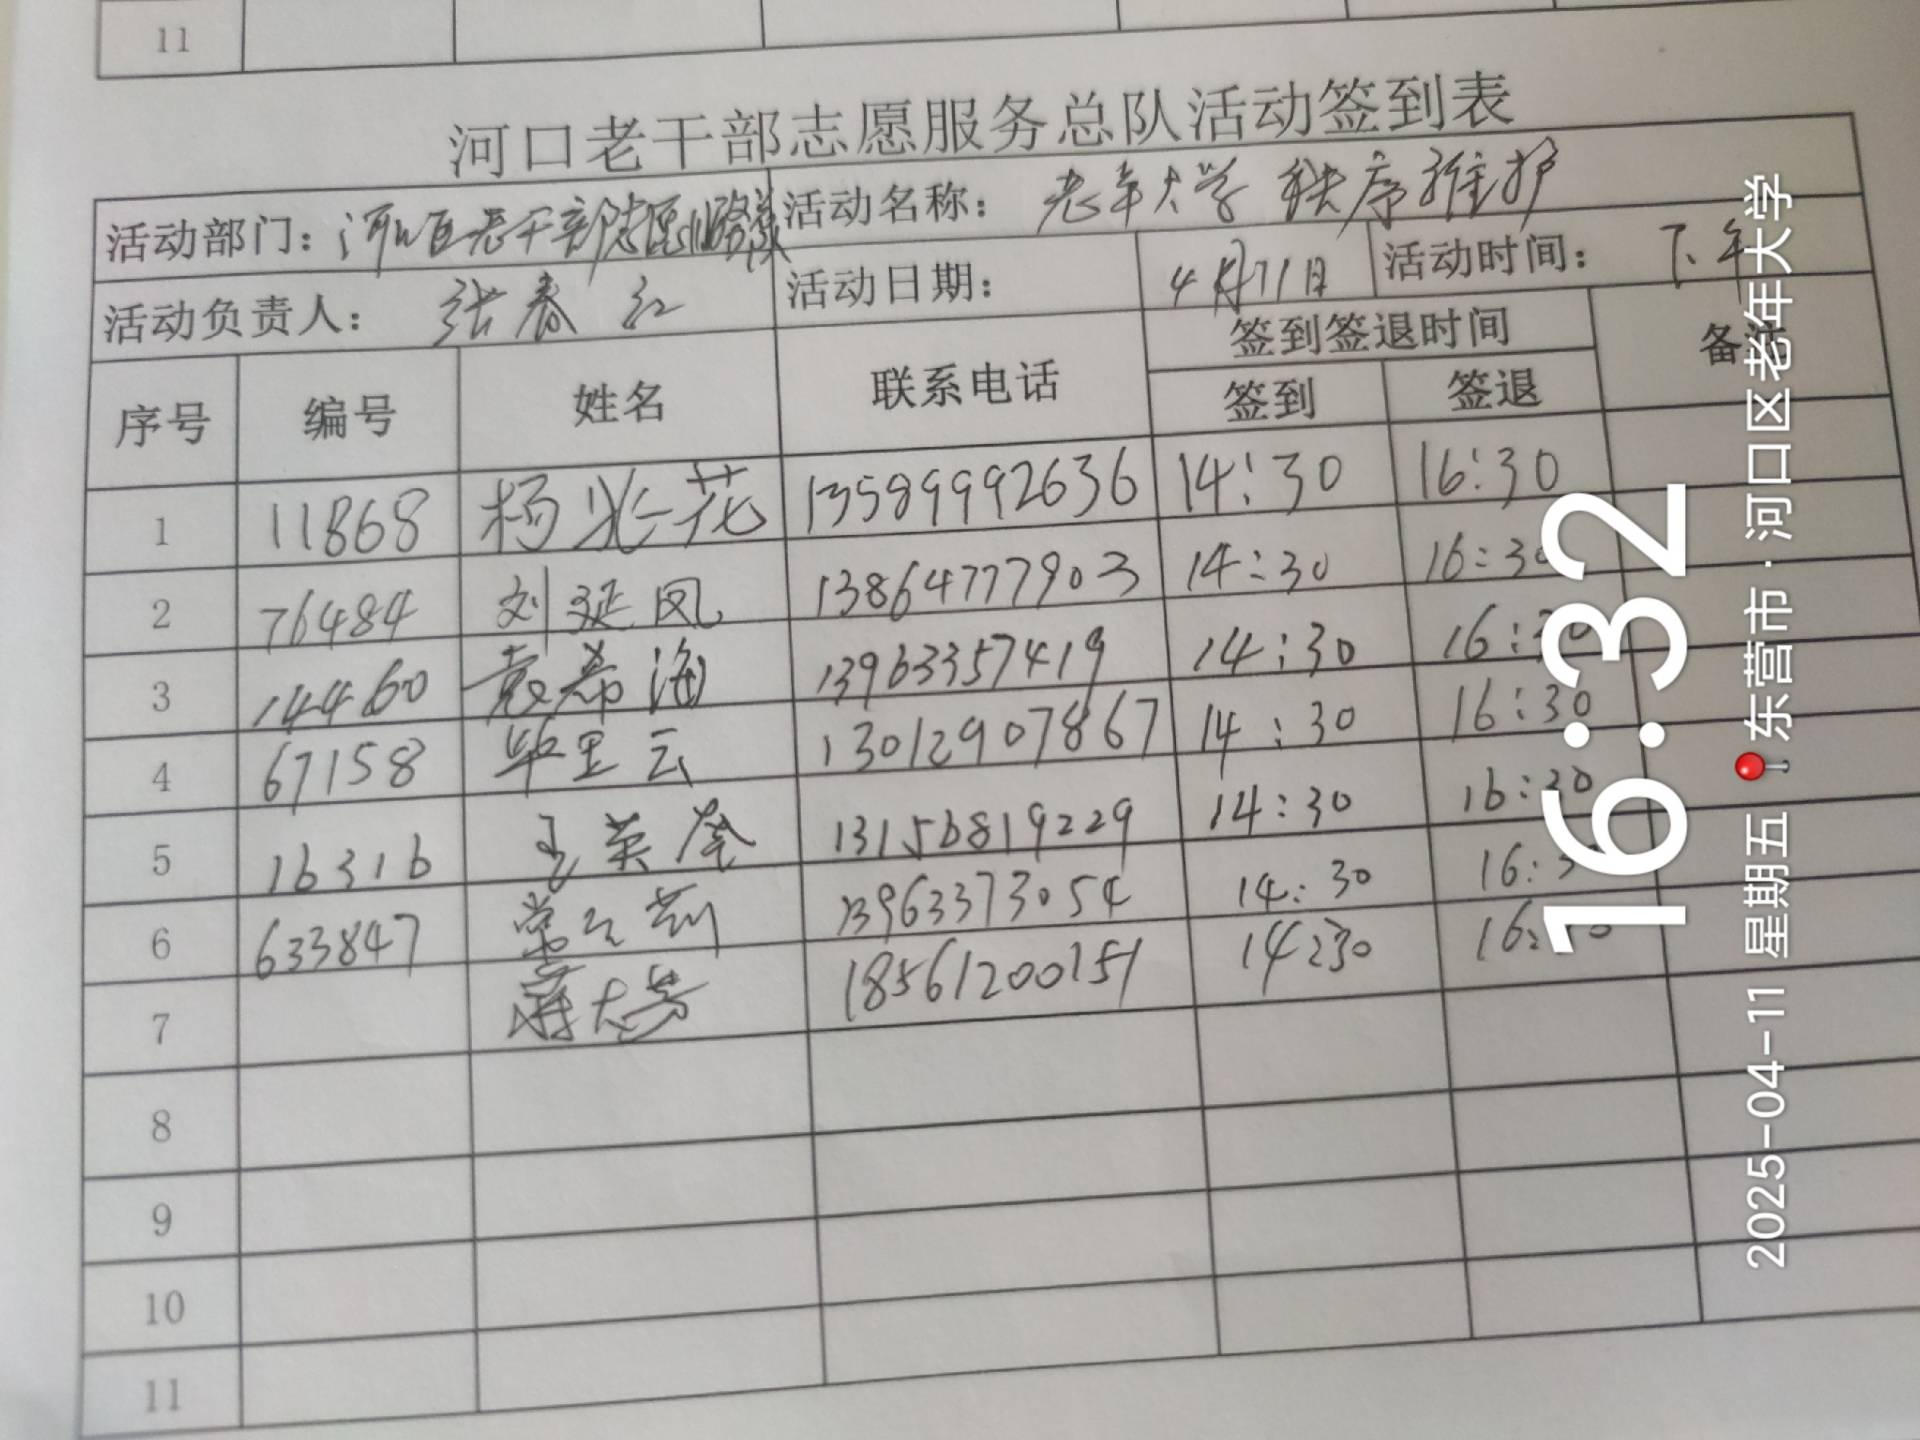 11
河口老干部志愿服务总队活动签到表
活动部门： 河口区老干部志愿服务总队 活动名称： 老年大学 秩序维护
活动负责人： 张春红 活动日期： 4月11日 活动时间： 下午
序号 编号 姓名 联系电话 签到签退时间 备注
签到 签退
1 11868 杨兴花 13589992636 14:30 16:30
2 76484 刘延凤 13864777903 14:30 16:30
3 14460 袁希海 13963357419 14:30 16:30
4 67158 毕里云 13012907867 14:30 16:30
5 16316 王英 13156819229 14:30 16:30
6 633847 13963373054 14:30 16:3
7 18561200151 14:30 16:
8
9
10
11
16:32
2025-04-11 星期五 东营市·河口区老年大学